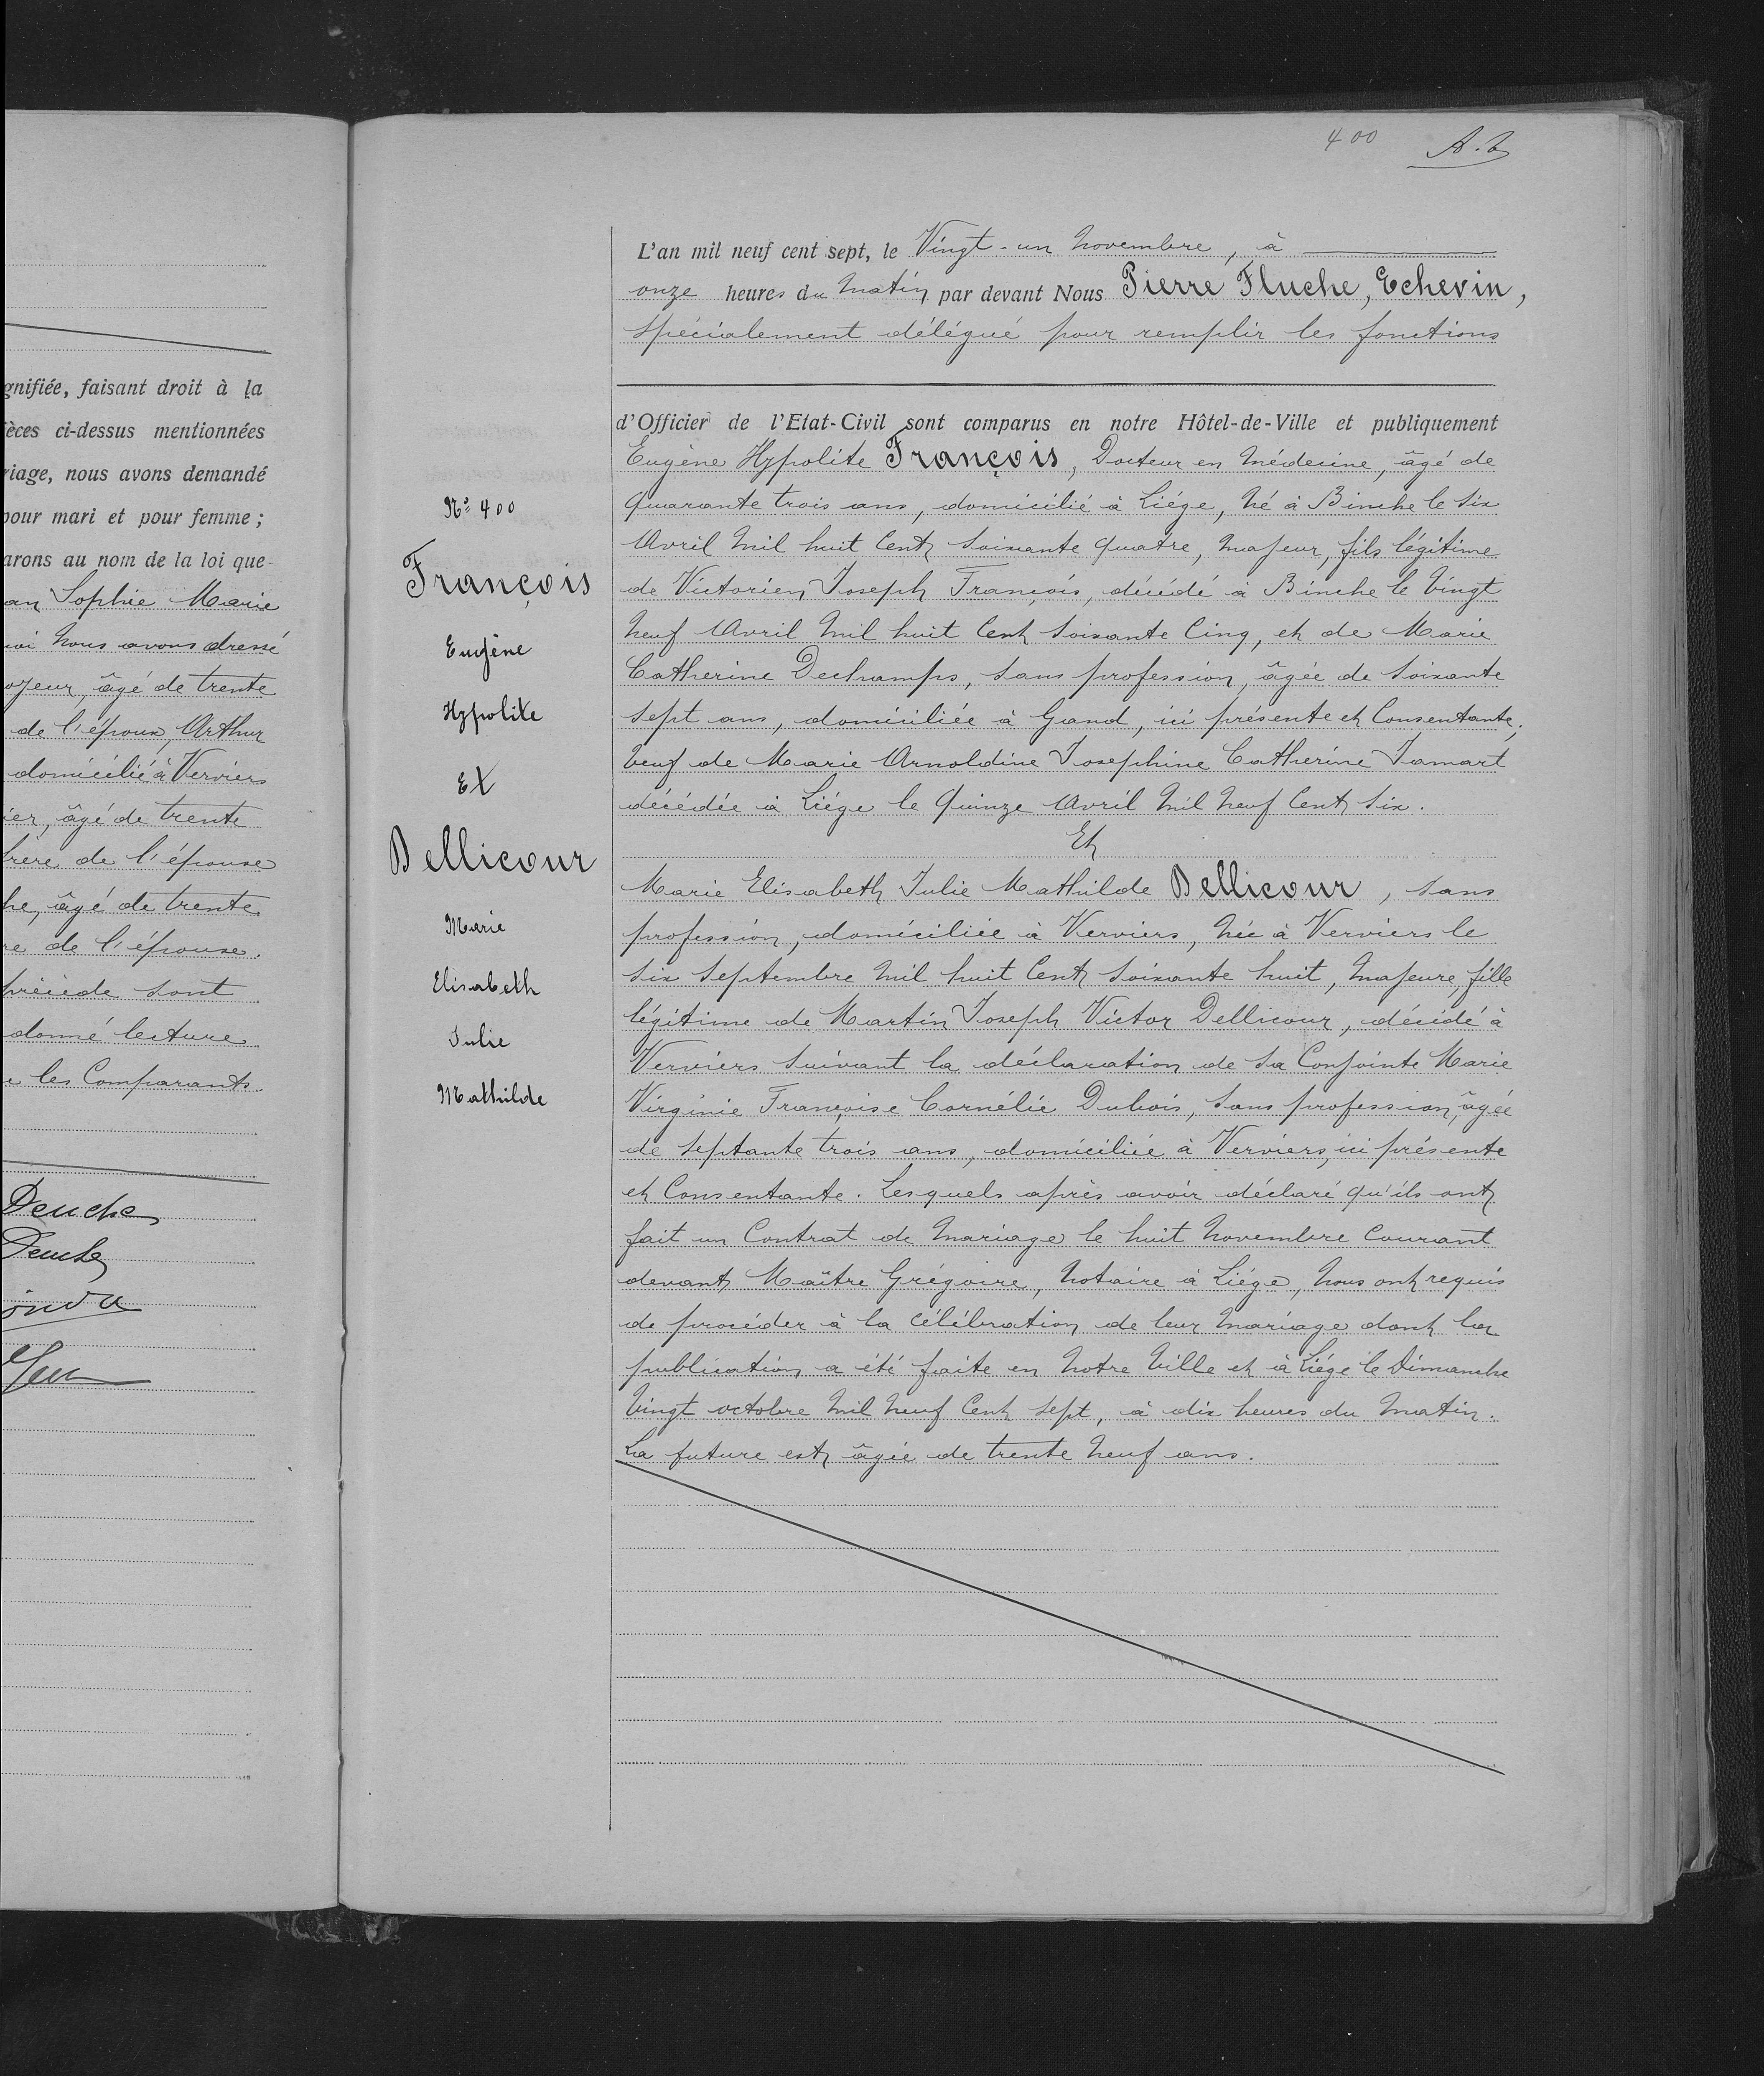 gnifiée, faisant droit à la
ièces ci-dessus mentionnées
riage, nous avons demandé
pour mari et pour femme ;
arons au nom de la loi que
an Sophie Marie
uoi Nous avons dressé
oyeur, âgé de trente
de l'époux, Arthur
domicilié à Verviers
ier, âgé de trente
frère de l'épouse
he, âgé de trente
re de l'épouse.
précède sont
donné lecture
e les Comparants.
400 A. b
L'an mil neuf cent sept, le Vingt-un Novembre, à
onze heures du Matin par devant Nous Pierre Fluche, Echevin,
spécialement délégué pour remplir les fonctions
d'Officier de l'Etat-Civil sont comparus en notre Hôtel-de-Ville et publiquement
Eugène Hypolite François, Docteur en Médecine, âgé de
quarante trois ans, domicilié à Liége, Né à Binche le Six
Avril Mil huit Cent Soixante quatre, Majeur, fils légitime
de Victorien Joseph François, décédé à Binche le Vingt
Neuf Avril Mil huit Cent Soixante Cinq, et de Marie
Catherine Dechamps, Sans profession, âgée de Soixante
Sept ans, domiciliée à Gand, ici présente et Consentante;
Veuf de Marie Arnoldine Josephine Catherine Jamart
décédée à Liége le Quinze Avril Mil Neuf Cent Six.
Et
Marie Elisabeth Julie Mathilde Dellicour, Sans
profession, domiciliée à Verviers, Née à Verviers le
Six Septembre Mil huit Cent Soixante huit, Majeure, fille
légitime de Martin Joseph Victor Dellicour, décédé à
Verviers Suivant la déclaration de Sa Conjointe Marie
Virginie Françoise Cornélie Dubois, Sans profession, âgée
de Septante trois ans, domiciliée à Verviers, ici présente
et Consentante. Lesquels après avoir déclaré qu'ils ont
fait un Contrat de Mariage le huit Novembre Courant
devant Maître Grégoire, Notaire à Liége, Nous ont requis
de procéder à la Célébration de leur Mariage dont la
publication a été faite en Notre Ville et à Liége le Dimanche
Vingt octobre Mil Neuf Cent Sept, à dix heures du Matin.
La future est âgée de trente Neuf ans.
N° 400
François
Eugène
Hypolite
Et
Dellicour
Marie
Elisabeth
Julie
Mathilde